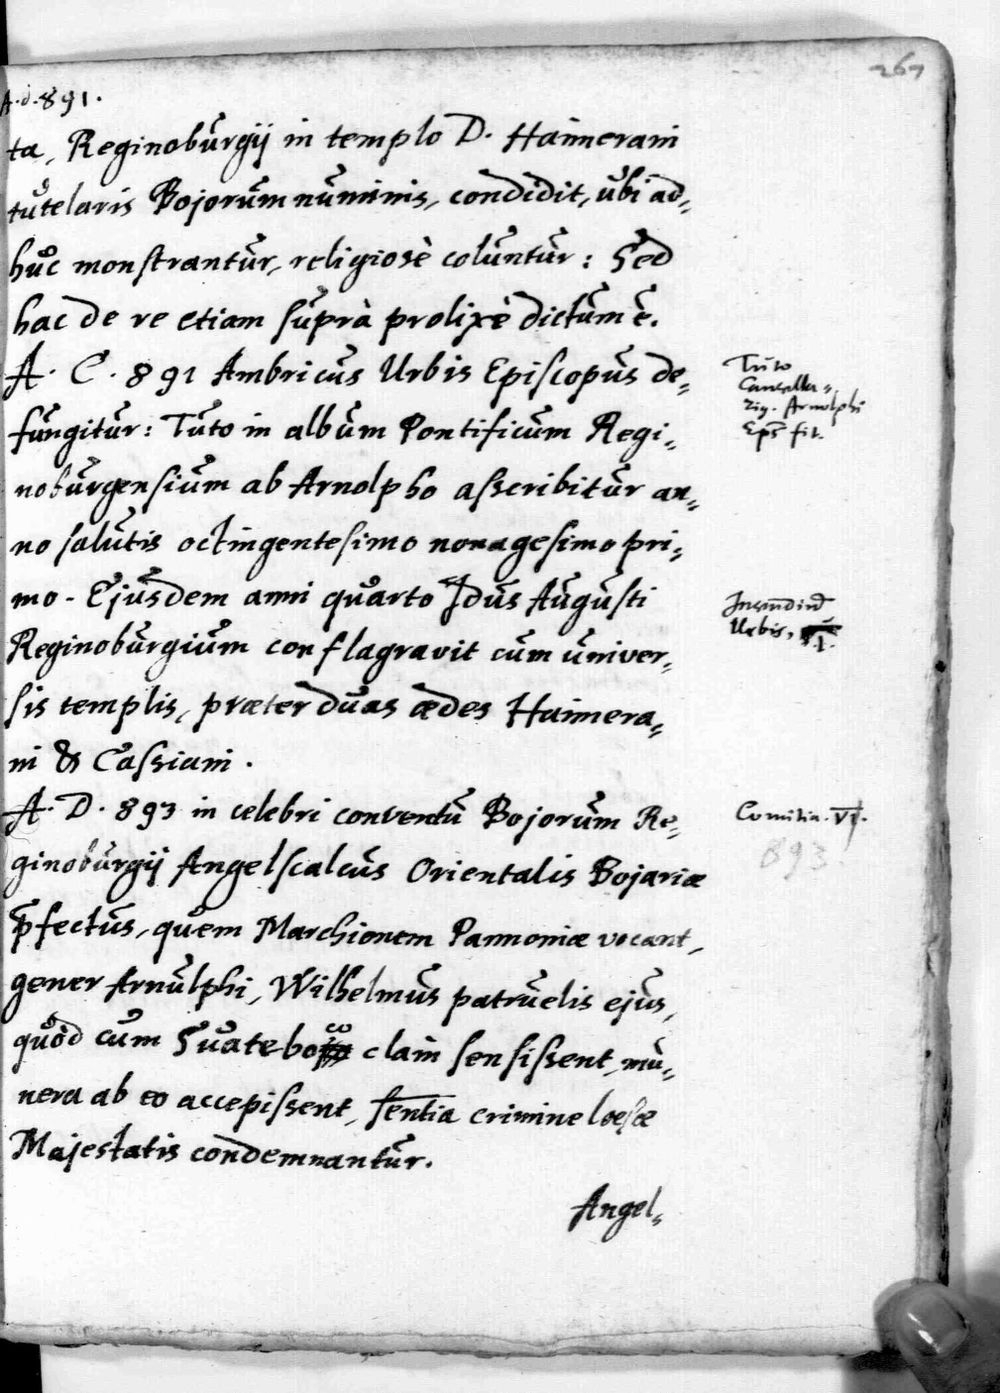 267
A. d. 891.
ta, Reginoburgij in templo D. Haimerani
tutelaris Bojorum numinis, condidit, ubi ad-
huc monstrantur, religiosè coluntur: Sed
hac de re etiam suprà prolixè dictum ē.
A. C. 891 Ambricus Urbis Episcopus de-
fungitur: Tuto in album Pontificum Regi-
noburgensium ab Arnolpho asscribitur an-
no salutis octingentesimo nonagesimo pri-
mo. Ejusdem anni quarto Idus Augusti
Reginoburgium conflagravit cum univer-
sis templis, præter duas ædes Haimera-
ni & Cassiani.
A. D. 893 in celebri conventu Bojorum Re-
ginoburgij Angelscalcus Orientalis Bojariæ
p̄fectus, quem Marchionem Pannoniæ vocant,
gener Arnulphi, Wilhelmus patruelis ejus,
quòd cum Suateboco clam sensissent, mu-
nera ab eo accepissent, sentia crimine læsæ
Majestatis condemnantur.
Angel-
Tuto
Cancella-
rig. Arnolphi
Eps fit.
Incendiū
Urbis, I.
Comitia. VI.
893